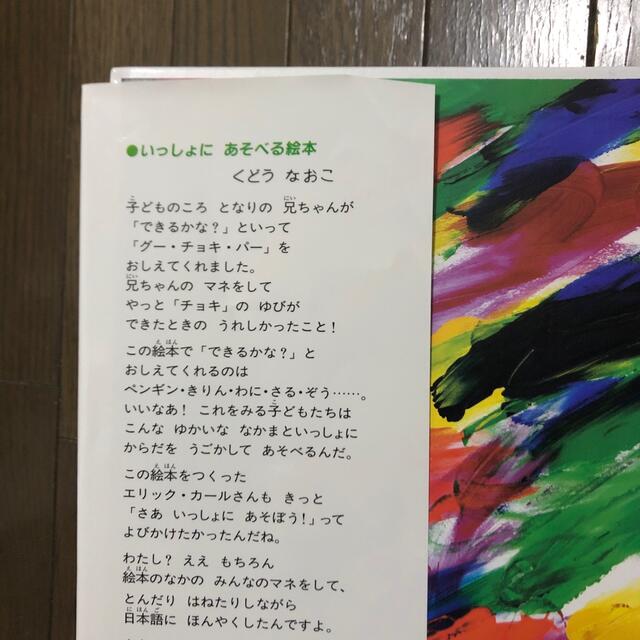 ●いっしょに あそべる絵本
くどう なおこ
子どものころ となりの 兄ちゃんが
「できるかな？」といって
「グー・チョキ・パー」を
おしえてくれました。
兄ちゃんの マネをして
やっと「チョキ」の ゆびが
できたときの うれしかったこと！
この絵本で「できるかな？」と
おしえてくれるのは
ペンギン・きりん・わに・さる・ぞう……。
いいなあ！ これをみる子どもたちは
こんな ゆかいな なかまといっしょに
からだを うごかして あそべるんだ。
この絵本をつくった
エリック・カールさんも きっと
「さあ いっしょに あそぼう！」って
よびかけたかったんだね。
わたし？ ええ もちろん
絵本のなかの みんなのマネをして、
とんだり はねたりしながら
日本語に ほんやくしたんですよ。